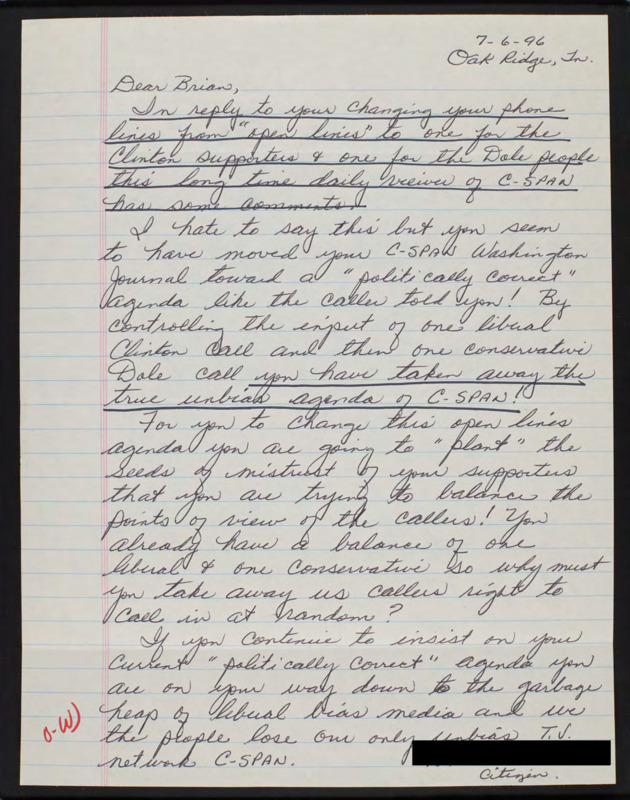 7-6-96
Oak Ridge, Tn.
Dear Brian,
In reply to your changing your phone
lines from "open lines" to one for the
Clinton supporters & one for the Dole people
this long time daily viewer of C-SPAN
has some comments.
I hate to say this but you seem
to have moved your C-SPAN Washington
Journal toward a "politically correct"
agenda like the caller told you! By
controlling the input of one liberal
Clinton call and then one conservative
Dole call you have taken away the
true unbias agenda of C-SPAN!
For you to change this open lines
agenda you are going to "plant" the
seeds of mistrust of your supporters
that you are trying to balance the
points of view of the callers! You
already have a balance of one
liberal & one conservative so why must
you take away us callers right to
call in at random?
If you continue to insist on your
current "politically correct" agenda you
are on your way down to the garbage
heap of liberal bias media and we
the people lose our only unbias T.V.
network C-SPAN.
Citizen.
O-W)